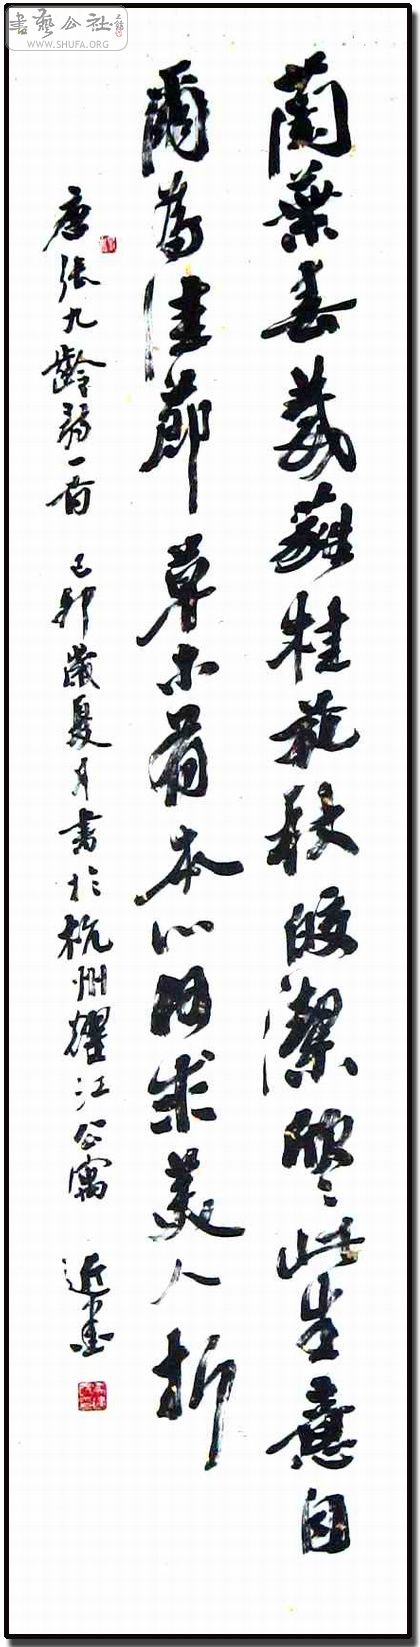 書藝公社
WWW.SHUFA.ORG
蘭葉春葳蕤桂花秋皎潔欣欣此生意自
爾為佳節草木有本心何求美人折
唐張九齡詩一首 己卯歲夏月書於杭州耀江公寓 近